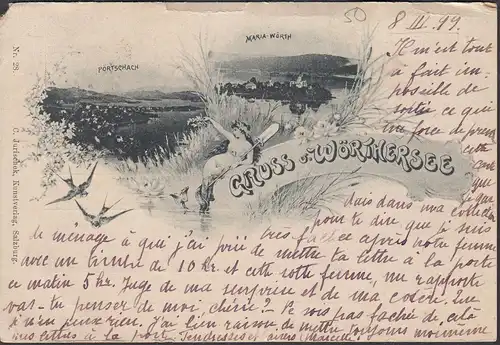 50
8 III. 99.
MARIA-WÖRTH
PÖRTSCHACH
Nr. 28.
C. Jurischek, Kunstverlag, Salzburg.
GRUSS v. WÖRTHERSEE
Il m'est tout
à fait im-
possible de
ce que
de
ce que
dans ma
pour te dire que je suis
très fâchée après notre femme
de ménage à qui j'ai prié de mettre ta lettre à la poste
avec un timbre de 10 Kr. et cette sotte femme, me rapporte
ce matin 5 kr. Juge de ma surprise et de ma colère. Que
vas-tu penser de moi chérie? Ne sois pas fâchée de cela
je n'en peux rien. J'ai bien raison de mettre toujours moi-même
mes lettres à la poste. Tendresses et Marcelle